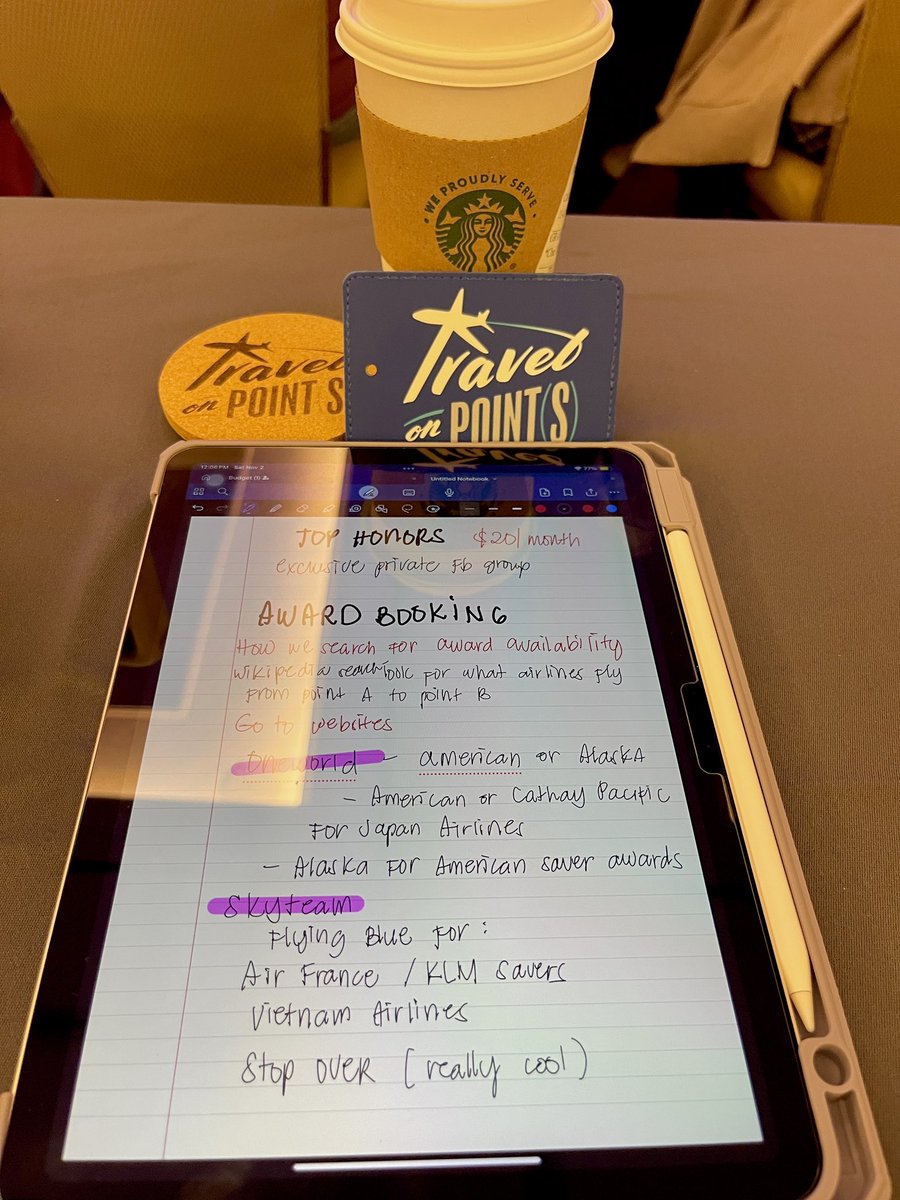 WE PROUDLY SERVE
Travel
on POINT(S)
Travel
on POINTS
12:06 PM Sat Nov 2
77%
Budget (1)
Untitled Notebook
TOP HONORS $20/month
exclusive private Fb group
AWARD BOOKING
How we search for award availability
Wikipedia search look for what airlines fly
from point A to point B
Go to websites
Oneworld - american or Alaska
- American or Cathay Pacific
For Japan Airlines
- Alaska for American saver awards
Skyteam
Flying Blue for:
Air France / KLM Savers
Vietnam Airlines
Stop over (really cool)